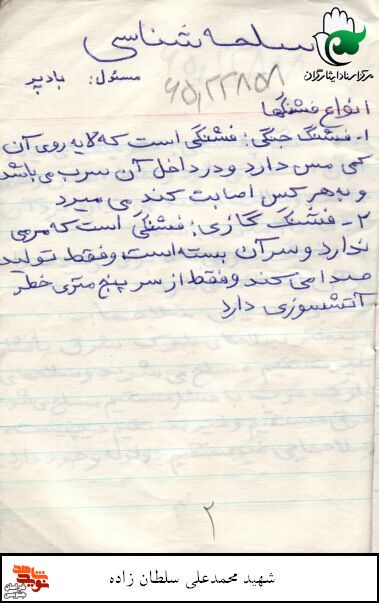 سلحه شناسی
مرکز اسناد ایثارگران
مسئول: بادپر
۶۵٫۲۲۸۵۸
انواع فشنگها
۱- فشنگ جنگی: فشنگی است که لایه روی آن
کمی مس دارد و در داخل آن سرب می باشد
و به هر کس اصابت کند می میرد
۲- فشنگ گازی: فشنگی است که مرمی
ندارد و سر آن بسته است، وفقط تولید
صدا می کند و فقط از سر پنج متری خطر
آتشسوزی دارد
۲
شهید محمدعلی سلطان زاده